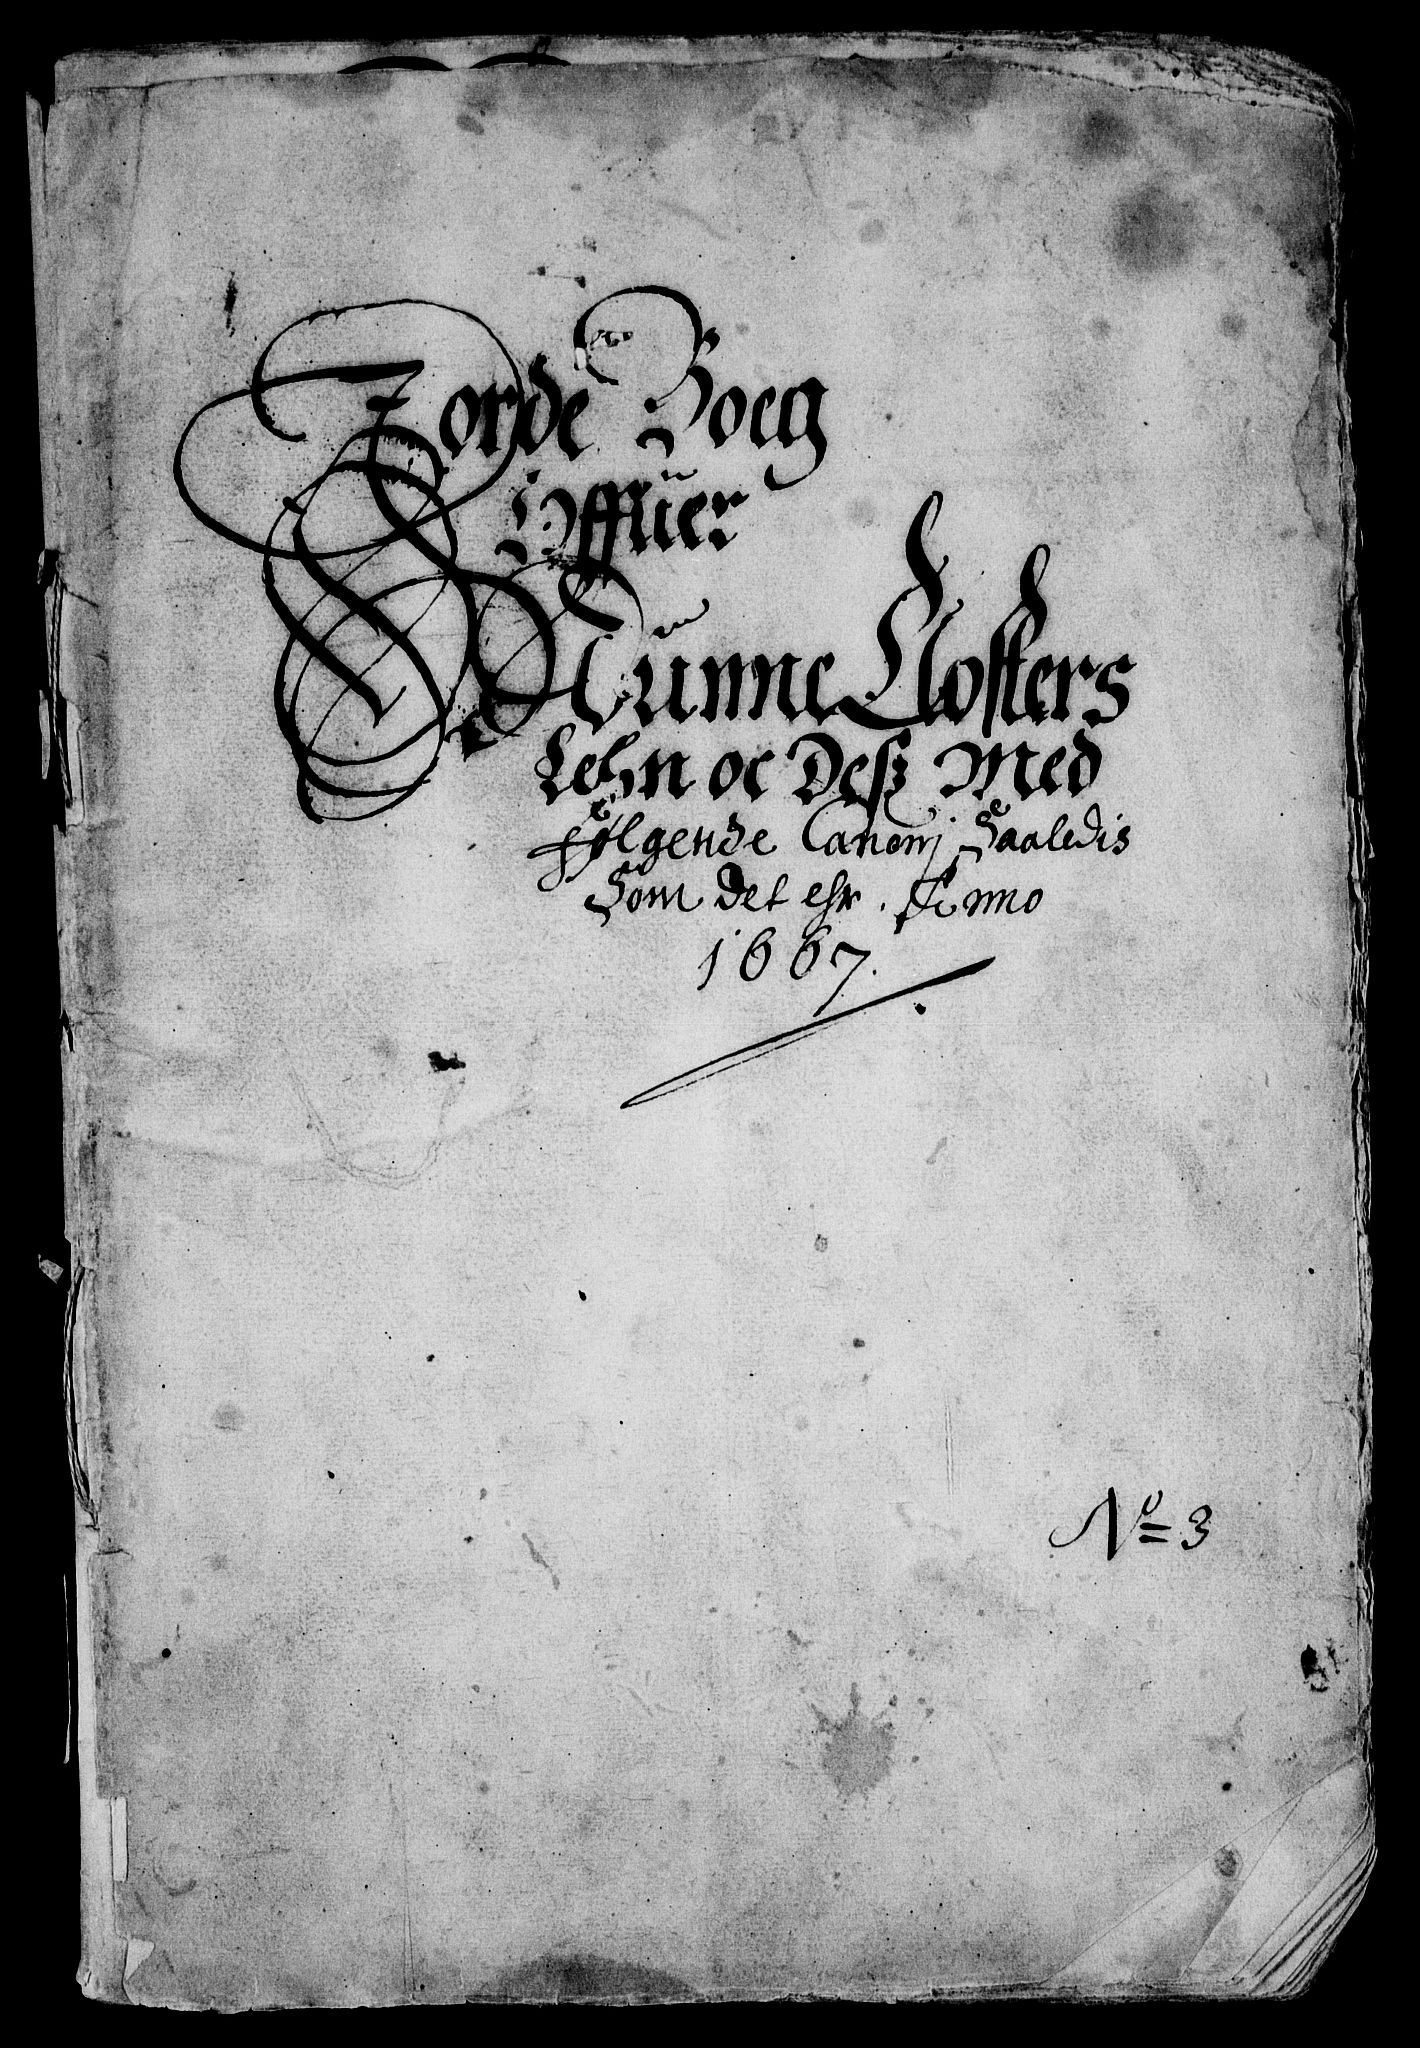 Jorde Boeg
Offuer
Nünne Closters
Lehn oc Desz Med
følgende Canonj Saaledis
Som det ehr. Anno
1667.
No= 3